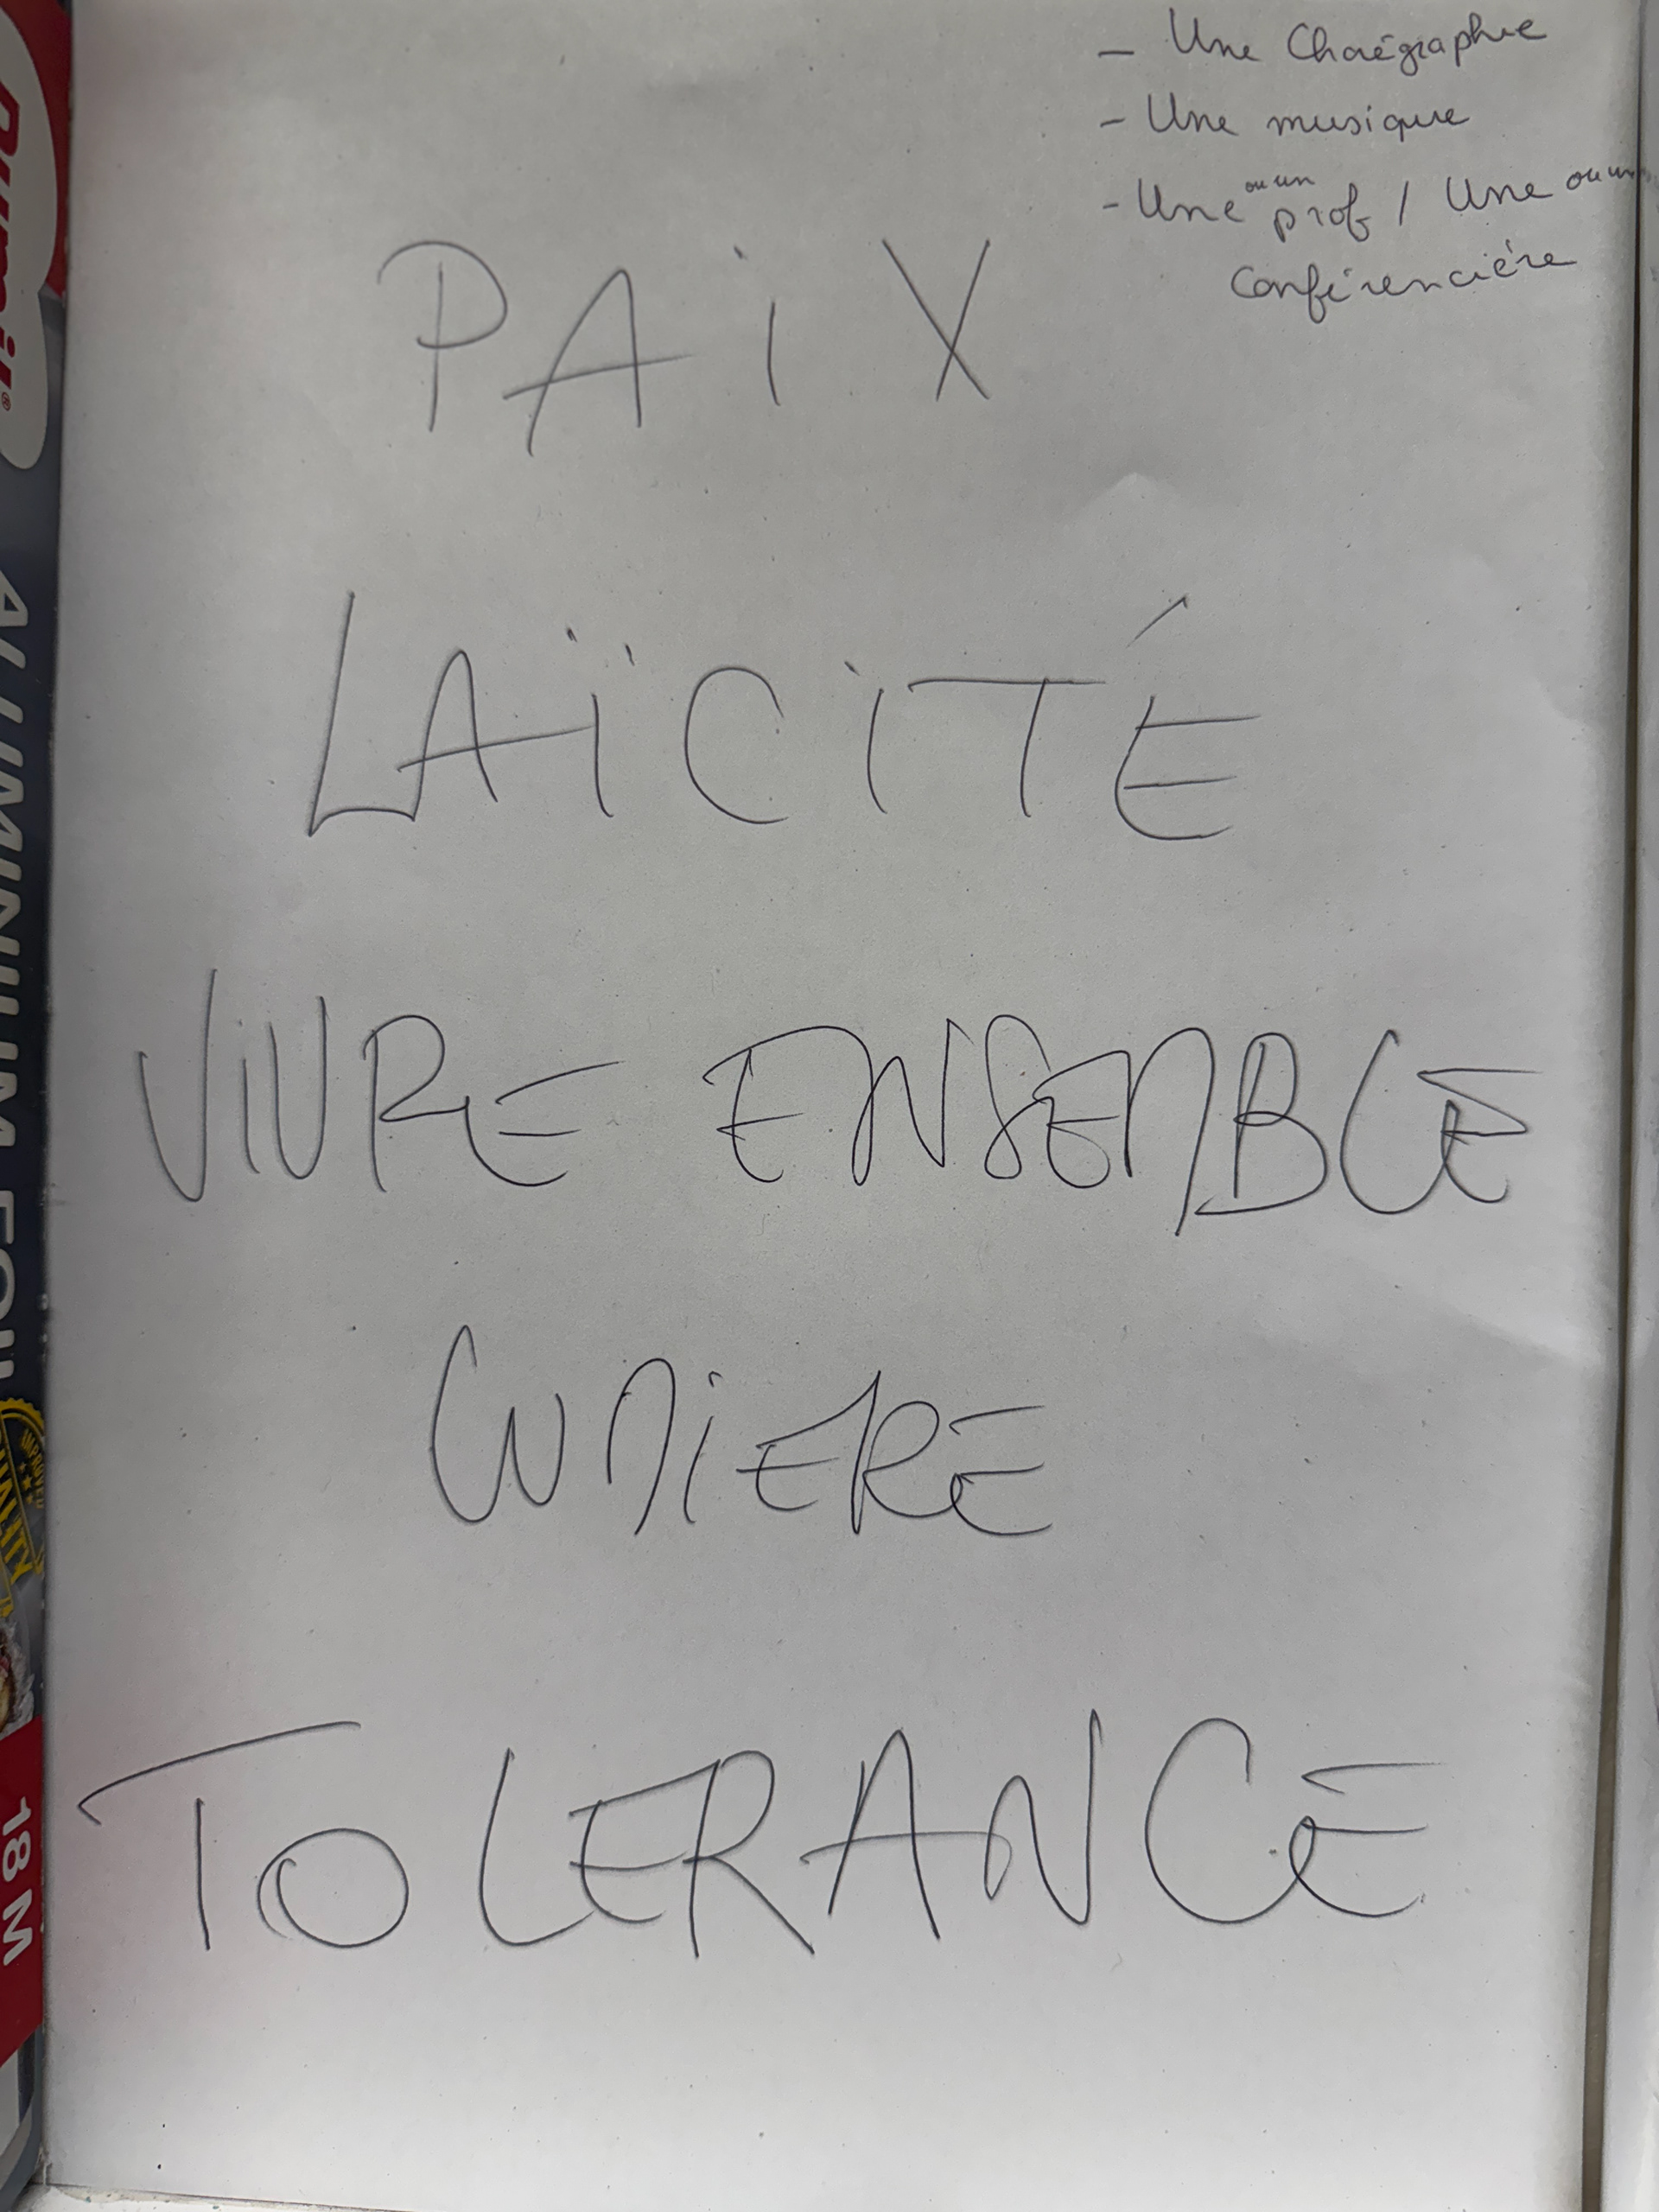 - Une Chorégraphie
- Une musique
- Une ou un prof / Une ou un
Conférencière
PAiX
LAÏCiTÉ
ViVRE ENSEMBLE
LUMiERE
TOLERANCE
ALUMINIUM FOIL
IMPROVED
QUALITY
18 M